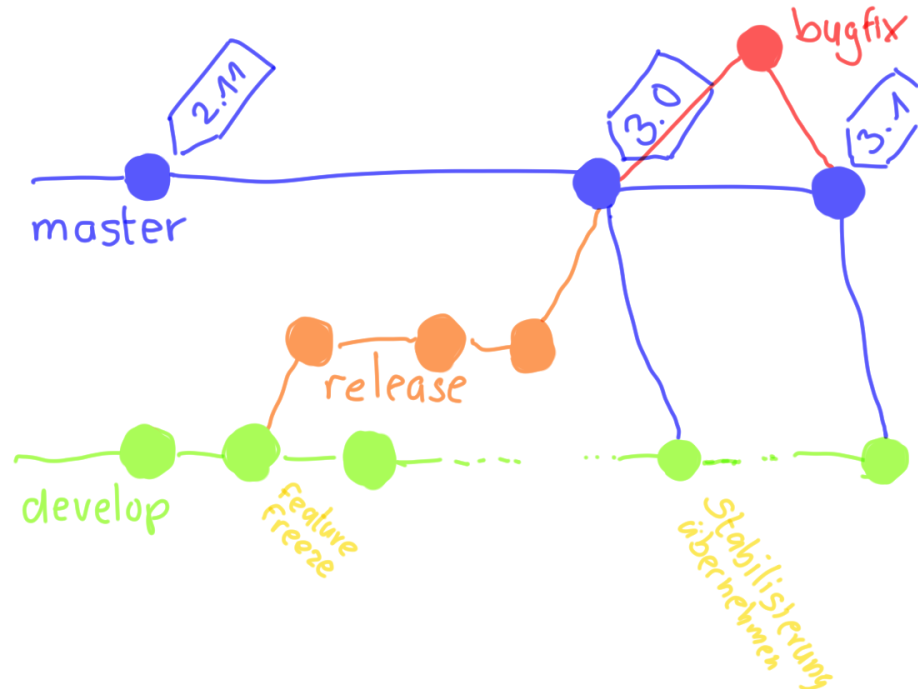 bugfix
2.11
3.0
3.1
master
release
develop
feature
freeze
Stabilisierung
übernehmen